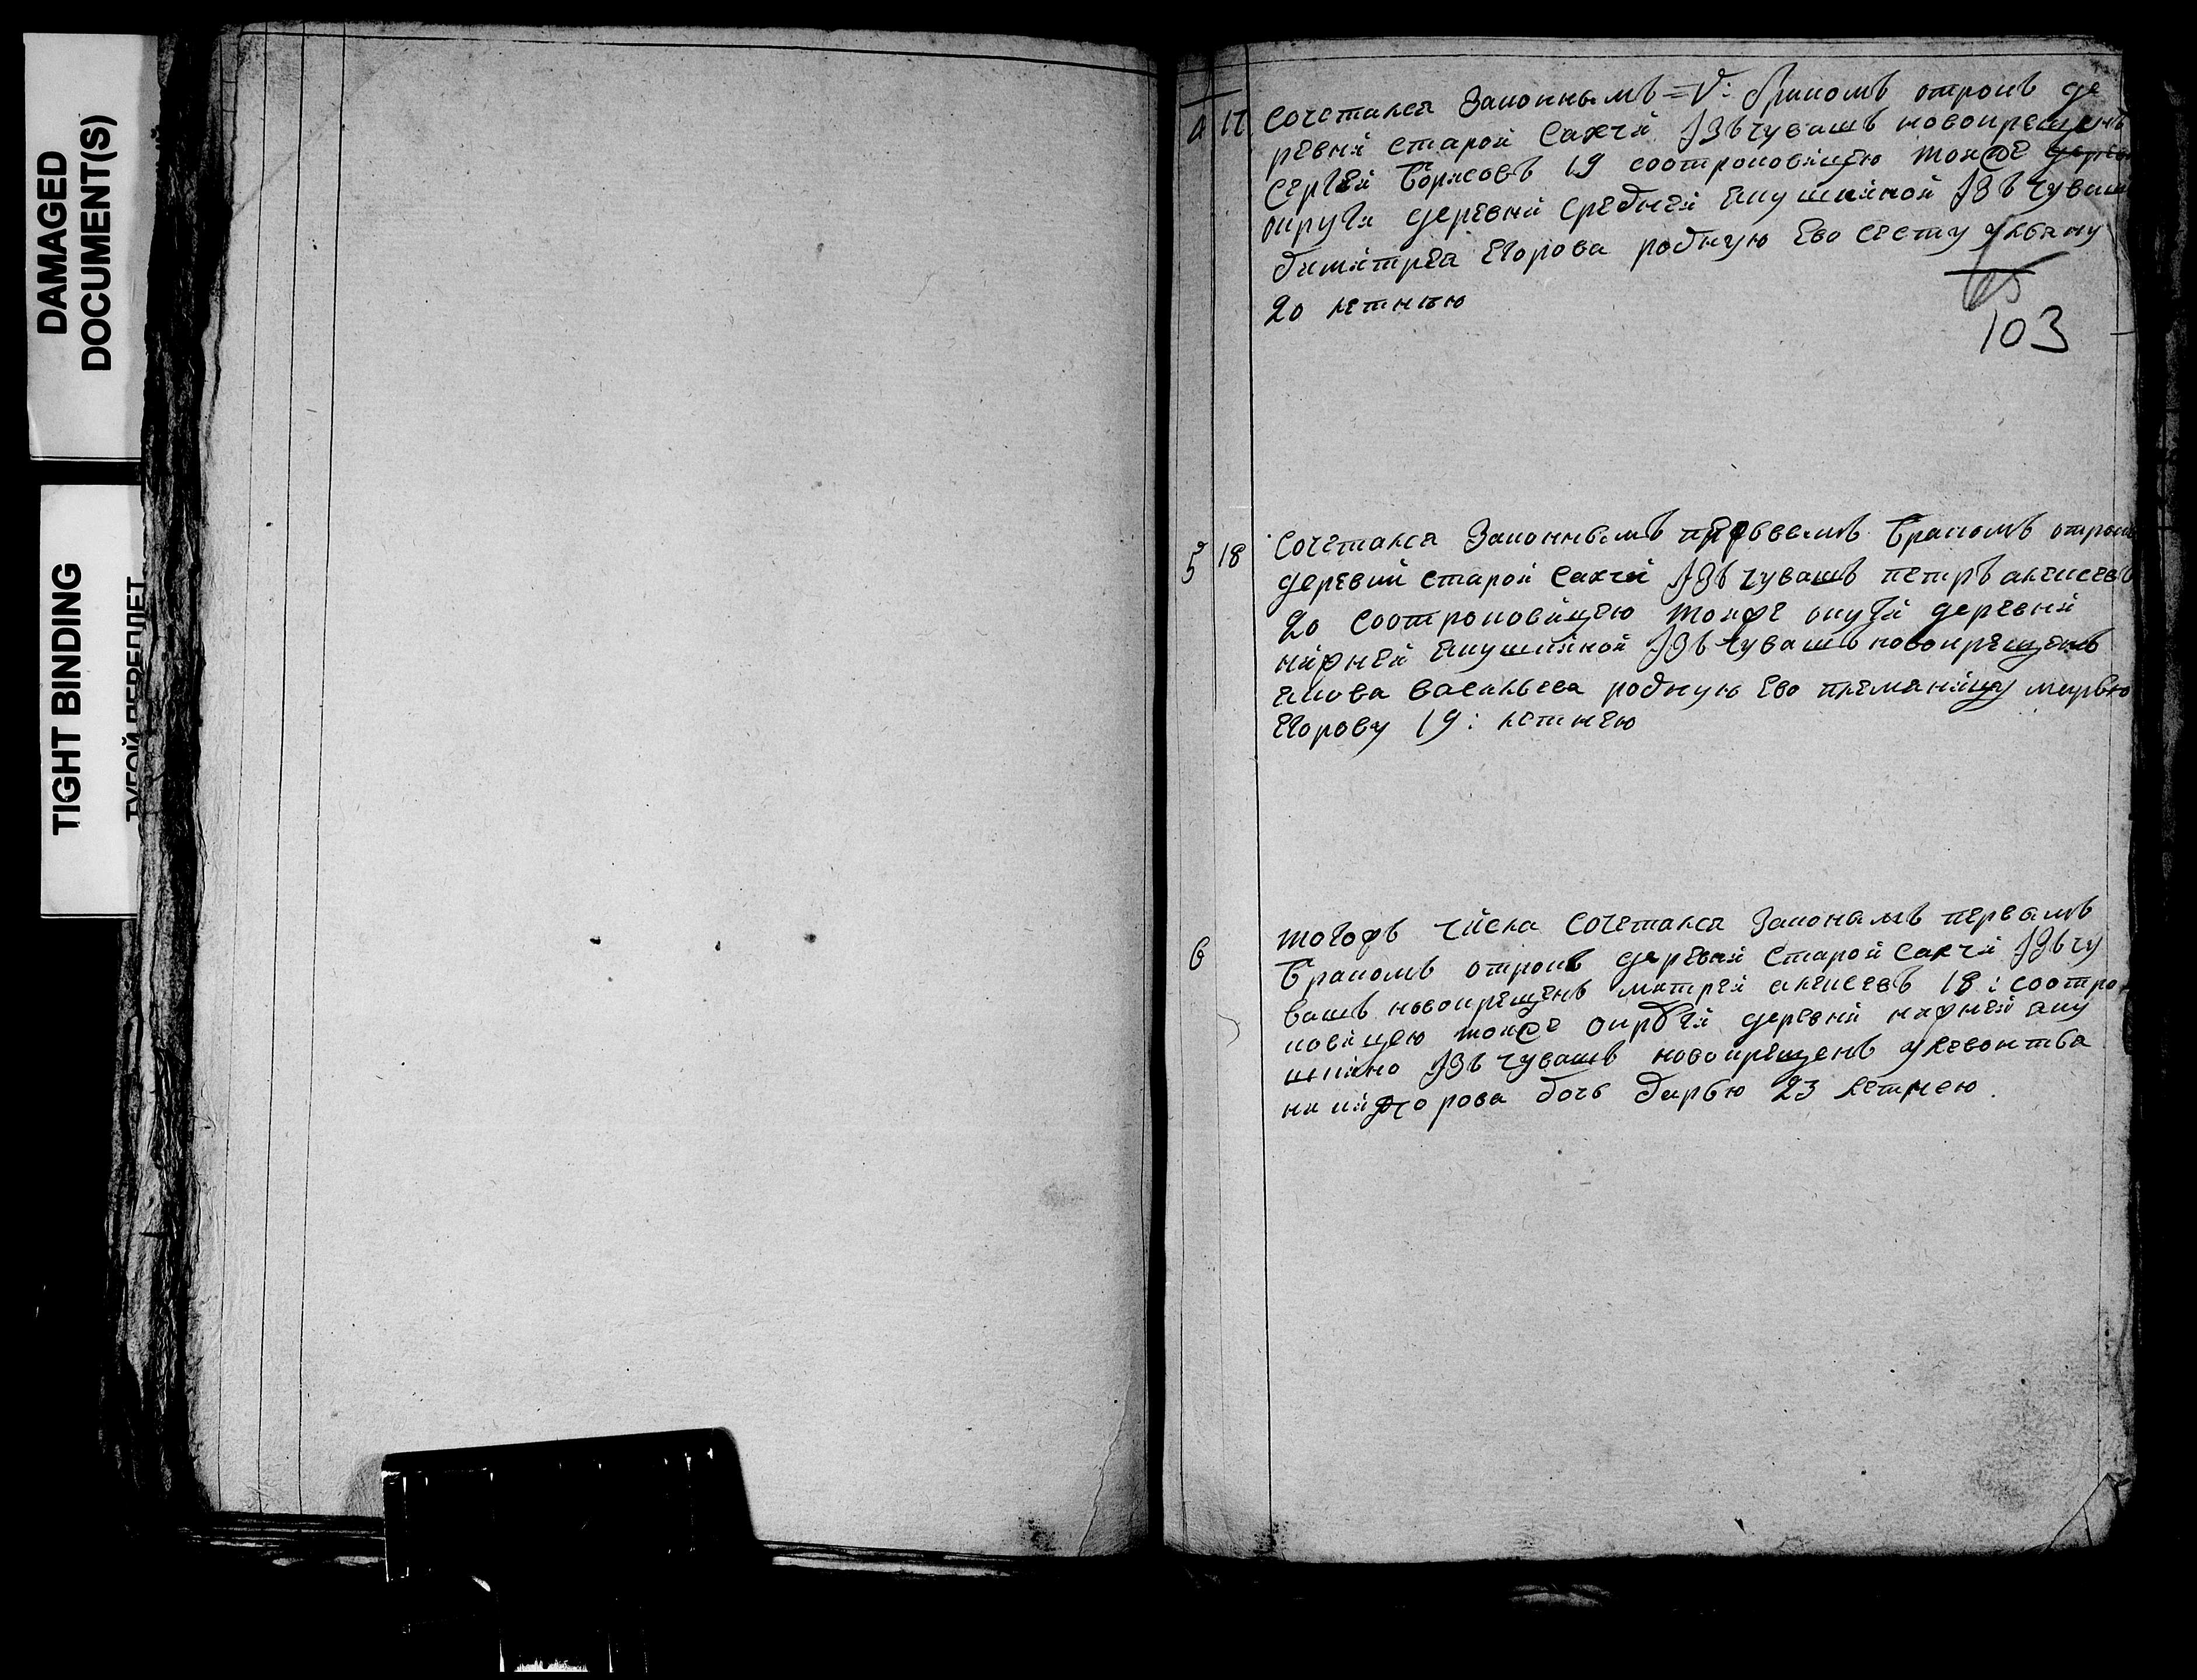 DAMAGED
DOCUMENT(S)
TIGHT BINDING
ТУГОЙ ПЕРЕПЛЕТ
4 17 сочетался законнымъ = V: бракомъ отрокъ де
ревни старой сахчи изъ чувашъ новокрещенъ
сергей борисовъ 19 соотроковицею тоеже
округи деревни средней якушкиной изъ чуваш
димитрея егорова родную ево сесту ульяну
20 летнюю
103
5 18 сочетался законнымъ первымъ бракомъ отрок
деревни старой сахчи изъ чувашъ петръ алексеевъ
20 соотроковицею тоеже окуги деревни
нижней якушкиной изъ чувашъ новокрещенъ
якова васильева родную ево племяницу марью
егорову 19: летнею
6 тогожъ числа сочетался законамъ первамъ
бракомъ отрокъ деревни старой сахчи изъ чу
вашъ новокрещенъ матрей алексеевъ 18: соотро
ковицею тоеже округи деревни нижней яку
шкино изъ чувашъ новокрещенъ улеонтьа
никифорова дочь дарью 23 летнею